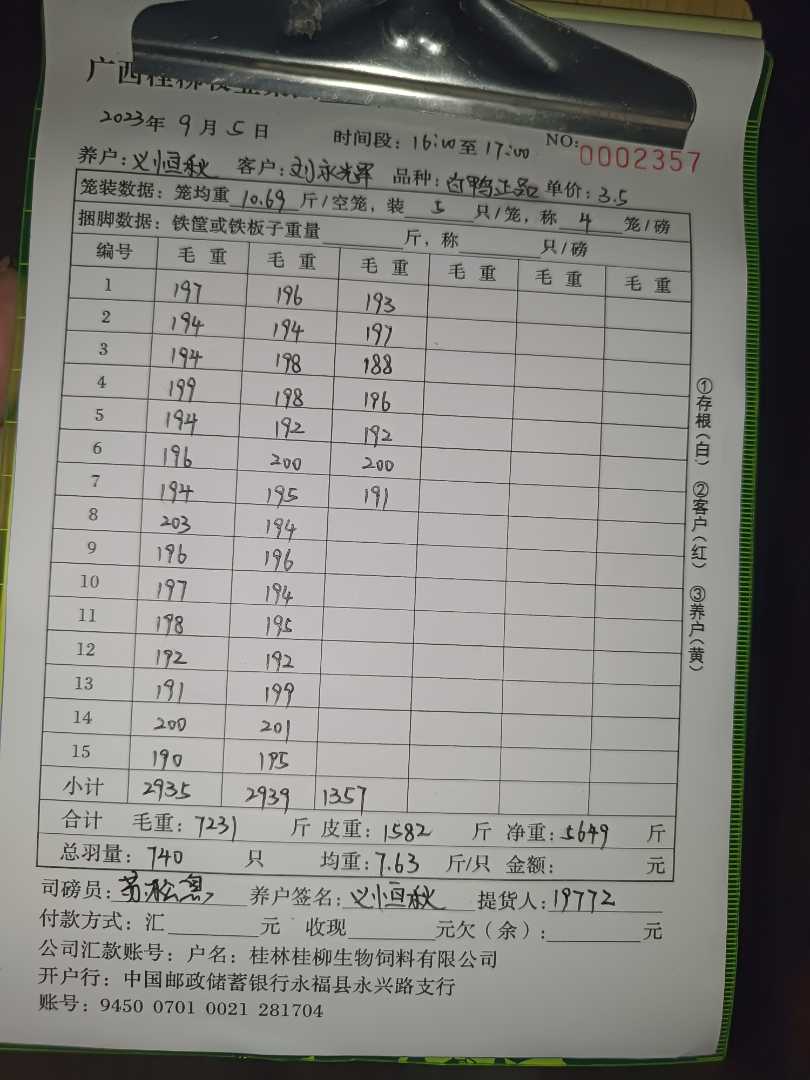 广西桂柳牧业
2023年 9月5日 时间段：16:00至17:00 NO: 0002357
养户：义恒秋 客户：刘永光军 品种：白鸭正品 单价：3.5
笼装数据：笼均重10.69斤/空笼，装5只/笼，称4笼/磅
捆脚数据：铁筐或铁板子重量 斤，称 只/磅
编号 毛重 毛重 毛重 毛重 毛重 毛重
1 197 196 193
2 194 194 197
3 194 198 188
4 199 198 196
5 194 192 192
6 196 200 200
7 194 195 191
8 203 194
9 196 196
10 197 194
11 198 195
12 192 192
13 191 199
14 200 201
15 190 195
小计 2935 2939 1357
合计 毛重：7231 斤 皮重：1582 斤 净重：5649 斤
总羽量：740 只 均重：7.63 斤/只 金额： 元
司磅员： 养户签名：义恒秋 提货人：19772
付款方式：汇 元 收现 元欠（余）： 元
公司汇款账号：户名：桂林桂柳生物饲料有限公司
开户行：中国邮政储蓄银行永福县永兴路支行
账号：9450 0701 0021 281704
①存根（白） ②客户（红） ③养户（黄）